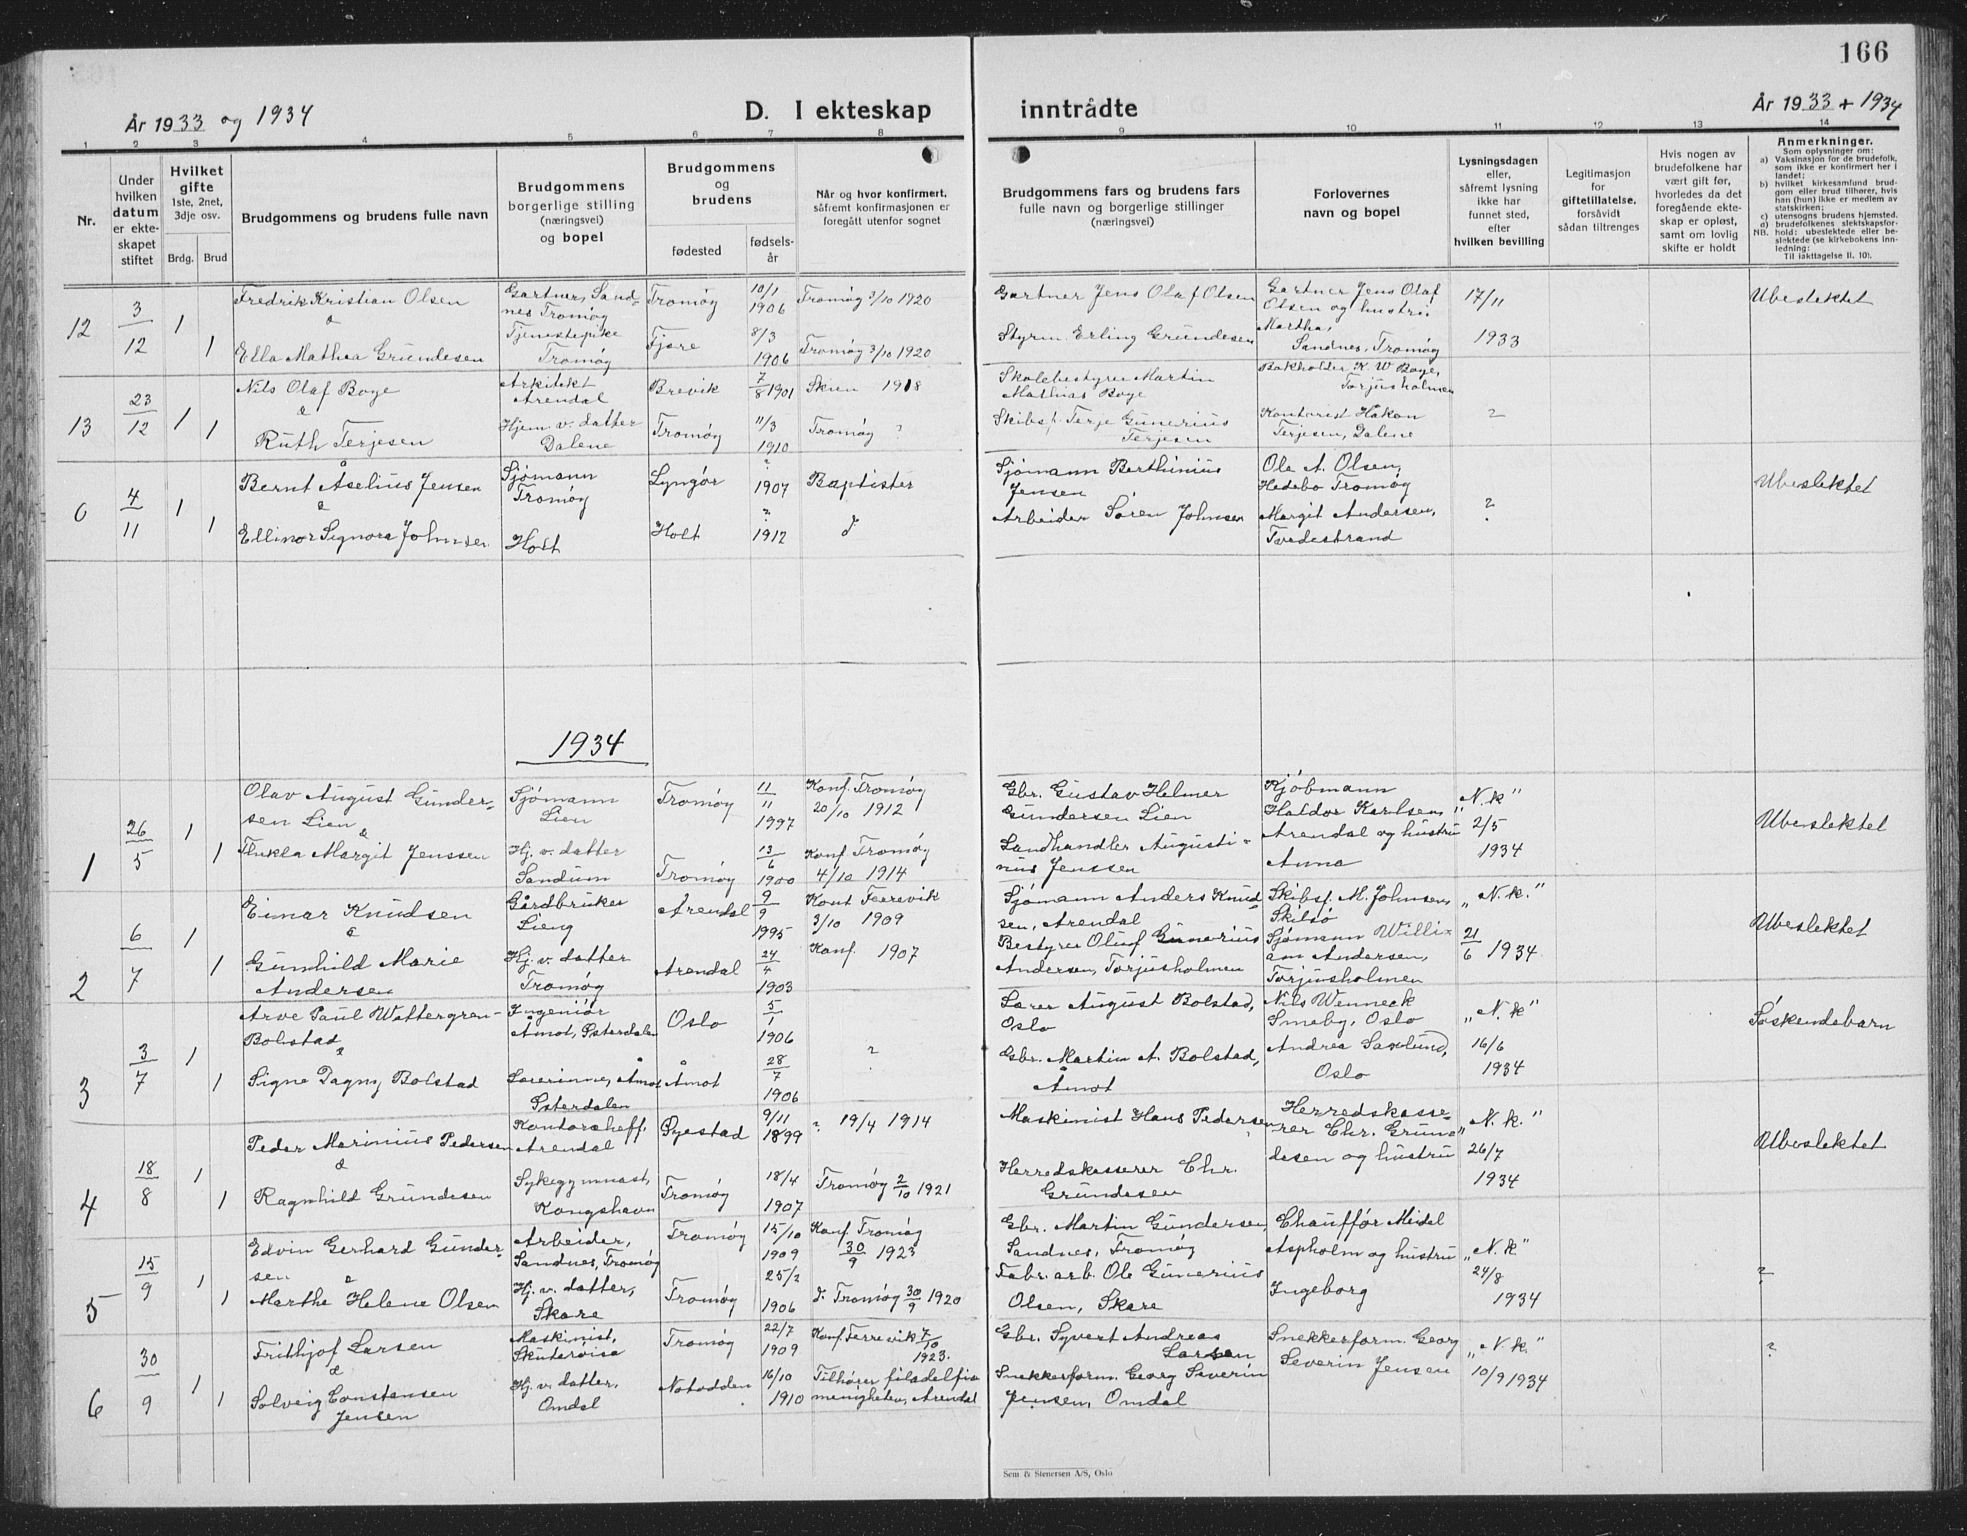 166
År 1933 og 1934
D. I ekteskap
inntrådte
År 1933 + 1934
1 2 3 4 5 6 7 8 9 10 11 12 13 14
Nr.
Under hvilken datum er ekte-skapet stiftet
Hvilket gifte
1ste, 2net, 3dje osv.
Brdg. Brud
Brudgommens og brudens fulle navn
Brudgommens borgerlige stilling
(næringsvei)
og bopel
Brudgommens og brudens
fødested
fødsels-år
Når og hvor konfirmert,
såfremt konfirmasjonen er
foregått utenfor sognet
Brudgommens fars og brudens fars
fulle navn og borgerlige stillinger
(næringsvei)
Forlovernes
navn og bopel
Lysningsdagen
eller,
såfremt lysning
ikke har
funnet sted,
efter
hvilken bevilling
Legitimasjon
for
giftetillatelse,
forsåvidt
sådan tiltrenges
Hvis nogen av
brudefolkene har
vært gift før,
hvorledes da det
foregående ekte-
skap er opløst,
samt om lovlig
skifte er holdt
Anmerkninger.
Som oplysninger om:
a) Vaksinasjon for de brudefolk,
som ikke er konfirmert her i
landet;
b) hvilket kirkesamfund brud-
gom eller brud tilhører, hvis
han (hun) ikke er medlem av
statskirken;
c) utensogns brudens hjemsted.
d) brudefolkenes slektskapsfor-
hold: ubeslektede eller be-
slektede (se kirkebokens inn-
ledning:
NB.
Til iakttagelse II. 10).
12
3/12
1
1
Fredrik Kristian Olsen
&
Ella Mathea Grundesen
Gartner, Sand-
nes Tromøy
Tjenestepike
Tromøy
Tromøy
Fjære
10/1
1906
8/3
1906
Tromøy 3/10 1920
Tromøy 3/10 1920
Gartner Jens Olaf Olsen
Styrm. Erling Grundesen
Gartner Jens Olaf
Olsen og hustru
Martha,
Sandnes, Tromøy
17/11
1933
Ubeslektet
13
23/12
1
1
Nils Olaf Boye
&
Ruth Terjesen
Arkitekt
Arendal
Hjem v. datter
Dalene
Brevik
Tromøy
7/8 1901
11/3
1910
Skien 1918
Tromøy ?
Skolebestyrer Martin
Mathias Boye
Skibsf. Terje Gunerius
Terjesen
Bokholder K. W Boye,
Torjusholmen
Kontorist Håkon
Terjesen, Dalene
?
0
4/11
1
1
Bernt Åselius Jensen
&
Ellinor Signora Johnsen
Sjømann
Tromøy
Holt
Lyngør
Holt
?
1907
?
1912
Baptister
d
Sjømann Berthinius
Jensen
Arbeider Søren Johnsen
Ole A. Olsen,
Hedebo Tromøy
Margit Andersen,
Tvedestrand
?
Ubeslektet
1934
1
26/5
1
1
Olav August Gunder-
sen Lien
&
Thekla Margit Jenssen
Sjømann
Lien
Hj. v. datter
Sandum
Tromøy
Tromøy
11/11
1997
13/6
1900
Konf. Tromøy
20/10 1912
Konf. Tromøy
4/10 1914
Gbr. Gustav Helmer
Gundersen Lien
Landhandler Augusti-
nus Jenssen
Kjøbmann
Haldor Karlsen,
Arendal og hustru
Anna
"N.k"
2/5
1934
Ubeslektet
2
6/7
1
1
Einar Knudsen
&
Gunhild Marie
Andersen
Gårdbruker
Lieng
Hj. v. datter
Tromøy
Arendal
Arendal
9/9
1995
24/4
1903
Konf Færevik
3/10 1909
Konf. 1907
Sjømann Anders Knud-
sen, Arendal
Bestyrer Oluf Gunerius
Andersen, Torjusholmen
Skibsf. M. Johnsen,
Skilsø
Sjømann Willi-
am Andersen,
Torjusholmen
"N.k."
21/6 1934
Ubeslektet
3
3/7
1
1
Arve Paul Wettergren-
Bolstad
&
Signe Dagny Bolstad
Ingeniør
Åmot, Østerdalen
Lærerinne, Åmot
Østerdalen
Oslo
Åmot
5/1
1906
28/7
1906
?
Lærer August Bolstad,
Oslo
Gbr. Martin A. Bolstad,
Åmot
Nils Wenneck
Smeby, Oslo
Andrea Saxlund,
Oslo
"N.k"
16/6
1934
Søskendebarn
4
18/8
1
1
Peder Marinius Pedersen
&
Ragnhild Grundesen
Kontorsheff,
Arendal
Sykegymnast,
Kongshavn
Øyestad
Tromøy
9/11
1899
18/4
1907
? 19/4 1914
Tromøy 2/10 1921
Maskinist Hans Pedersen
Herredskasserer Chr.
Grundesen
Herredskasse-
rer Chr. Grun-
desen og hustru
"N.k."
26/7
1934
Ubeslektet
5
15/9
1
1
Edvin Gerhard Gunder-
sen
&
Marthe Helene Olsen
Arbeider,
Sandnes, Tromøy
Hj. v. datter,
Skare
Tromøy
Tromøy
15/10
1909
25/2
1906
Konf Tromøy
30/9 1923
d. Tromøy 30/9 1920
Gbr. Martin Gundersen,
Sandnes, Tromøy
Fabr. arb. Ole Gunerius
Olsen, Skare
Chauffør Meidel
Aspholm og hustru
Ingeborg
"N.k"
24/8
1934
?
6
30/9
1
1
Frithjof Larsen
&
Solveig Constansen
Jensen
Maskinist,
Skuterviga
Hj. v. datter,
Omdal
Tromøy
Notodden
22/7
1909
16/10
1910
Konf. Færevik 7/10
1923.
Tilhører filadelfia
menigheten, Arendal
Gbr. Syvert Andreas
Larsen
Snekkerform. Georg Severin
Jensen, Omdal
Snekkerform. Georg
Severin Jensen
"N.k"
10/9 1934
?
Sem & Stenersen A/S, Oslo